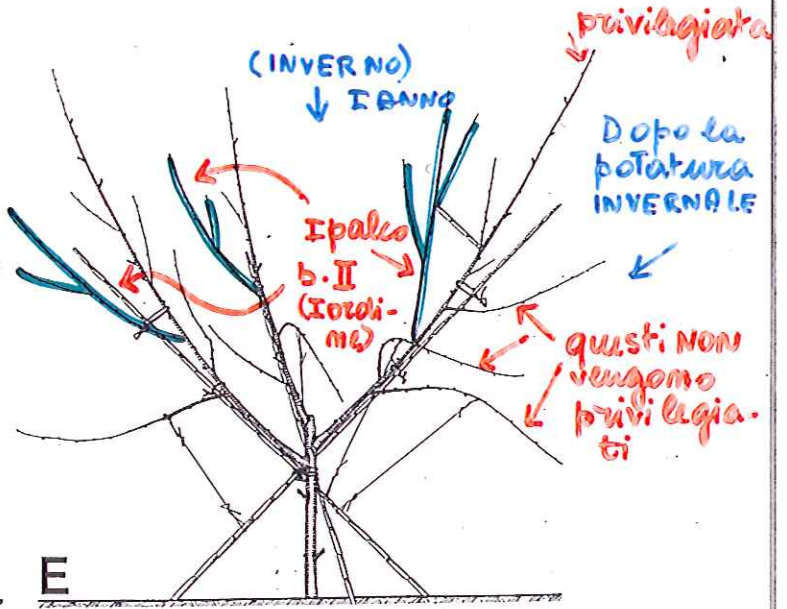 privilegiata
(INVERNO)
I ANNO
Dopo la
potatura
INVERNALE
I palco
b. II
(I ordi-
ne)
questi NON
vengono
privilegia-
ti
E